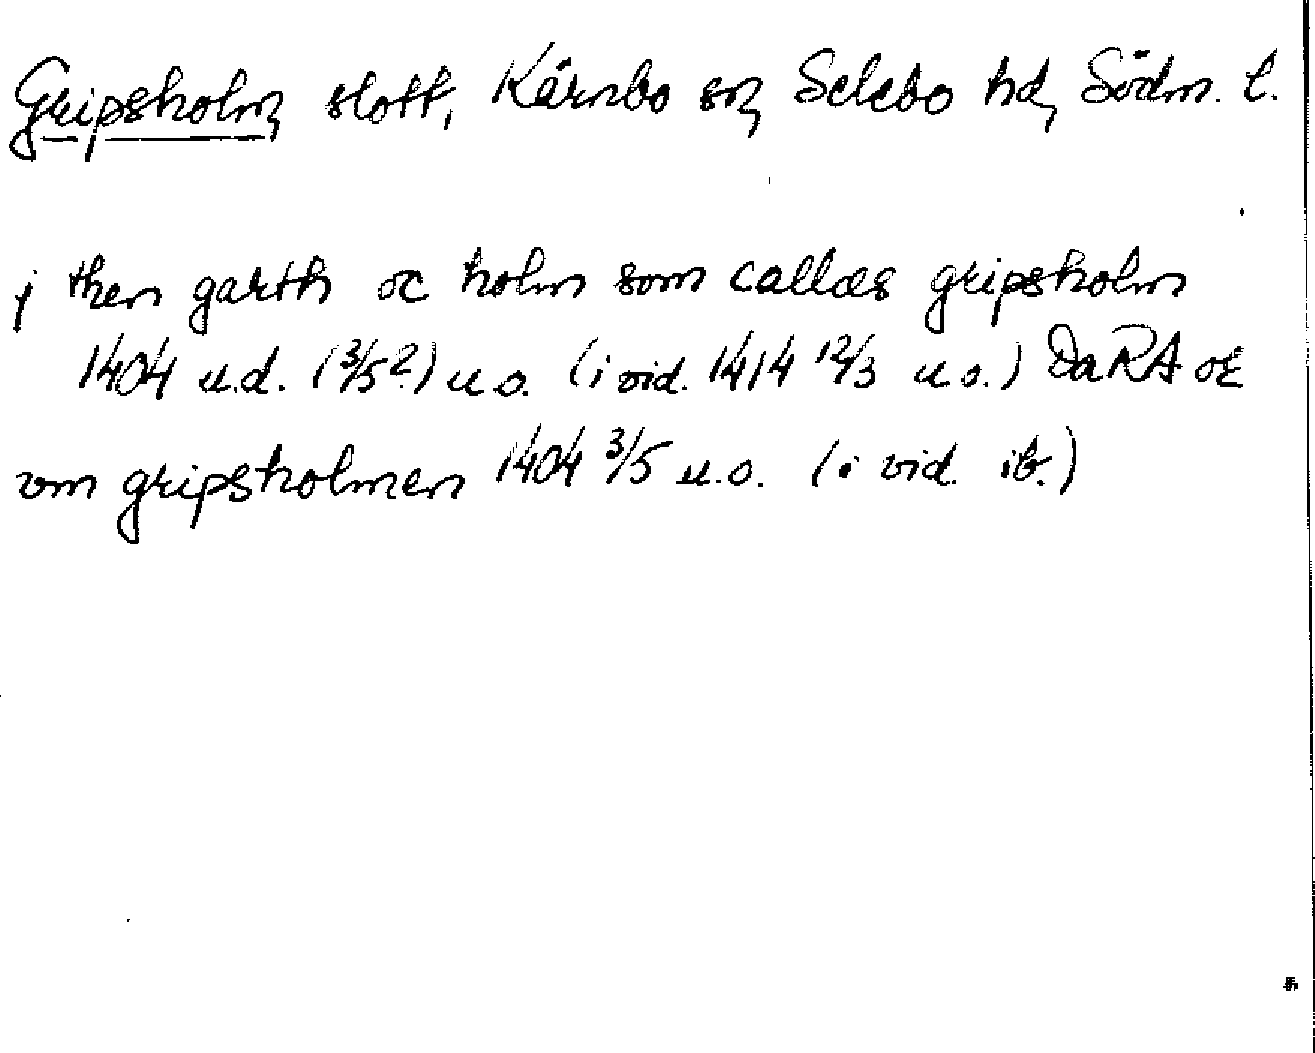 Gripsholm, slott, Kärnbo sn, Selebo hd, Södm. l.
j then garth oc holm som callæs gripsholm
1404 u.d. (3/5?) u.o. (i vid. 1414 12/3 u.o.) DaRA oE
vm gripsholmen 1404 3/5 u.o. (i vid. ib.)